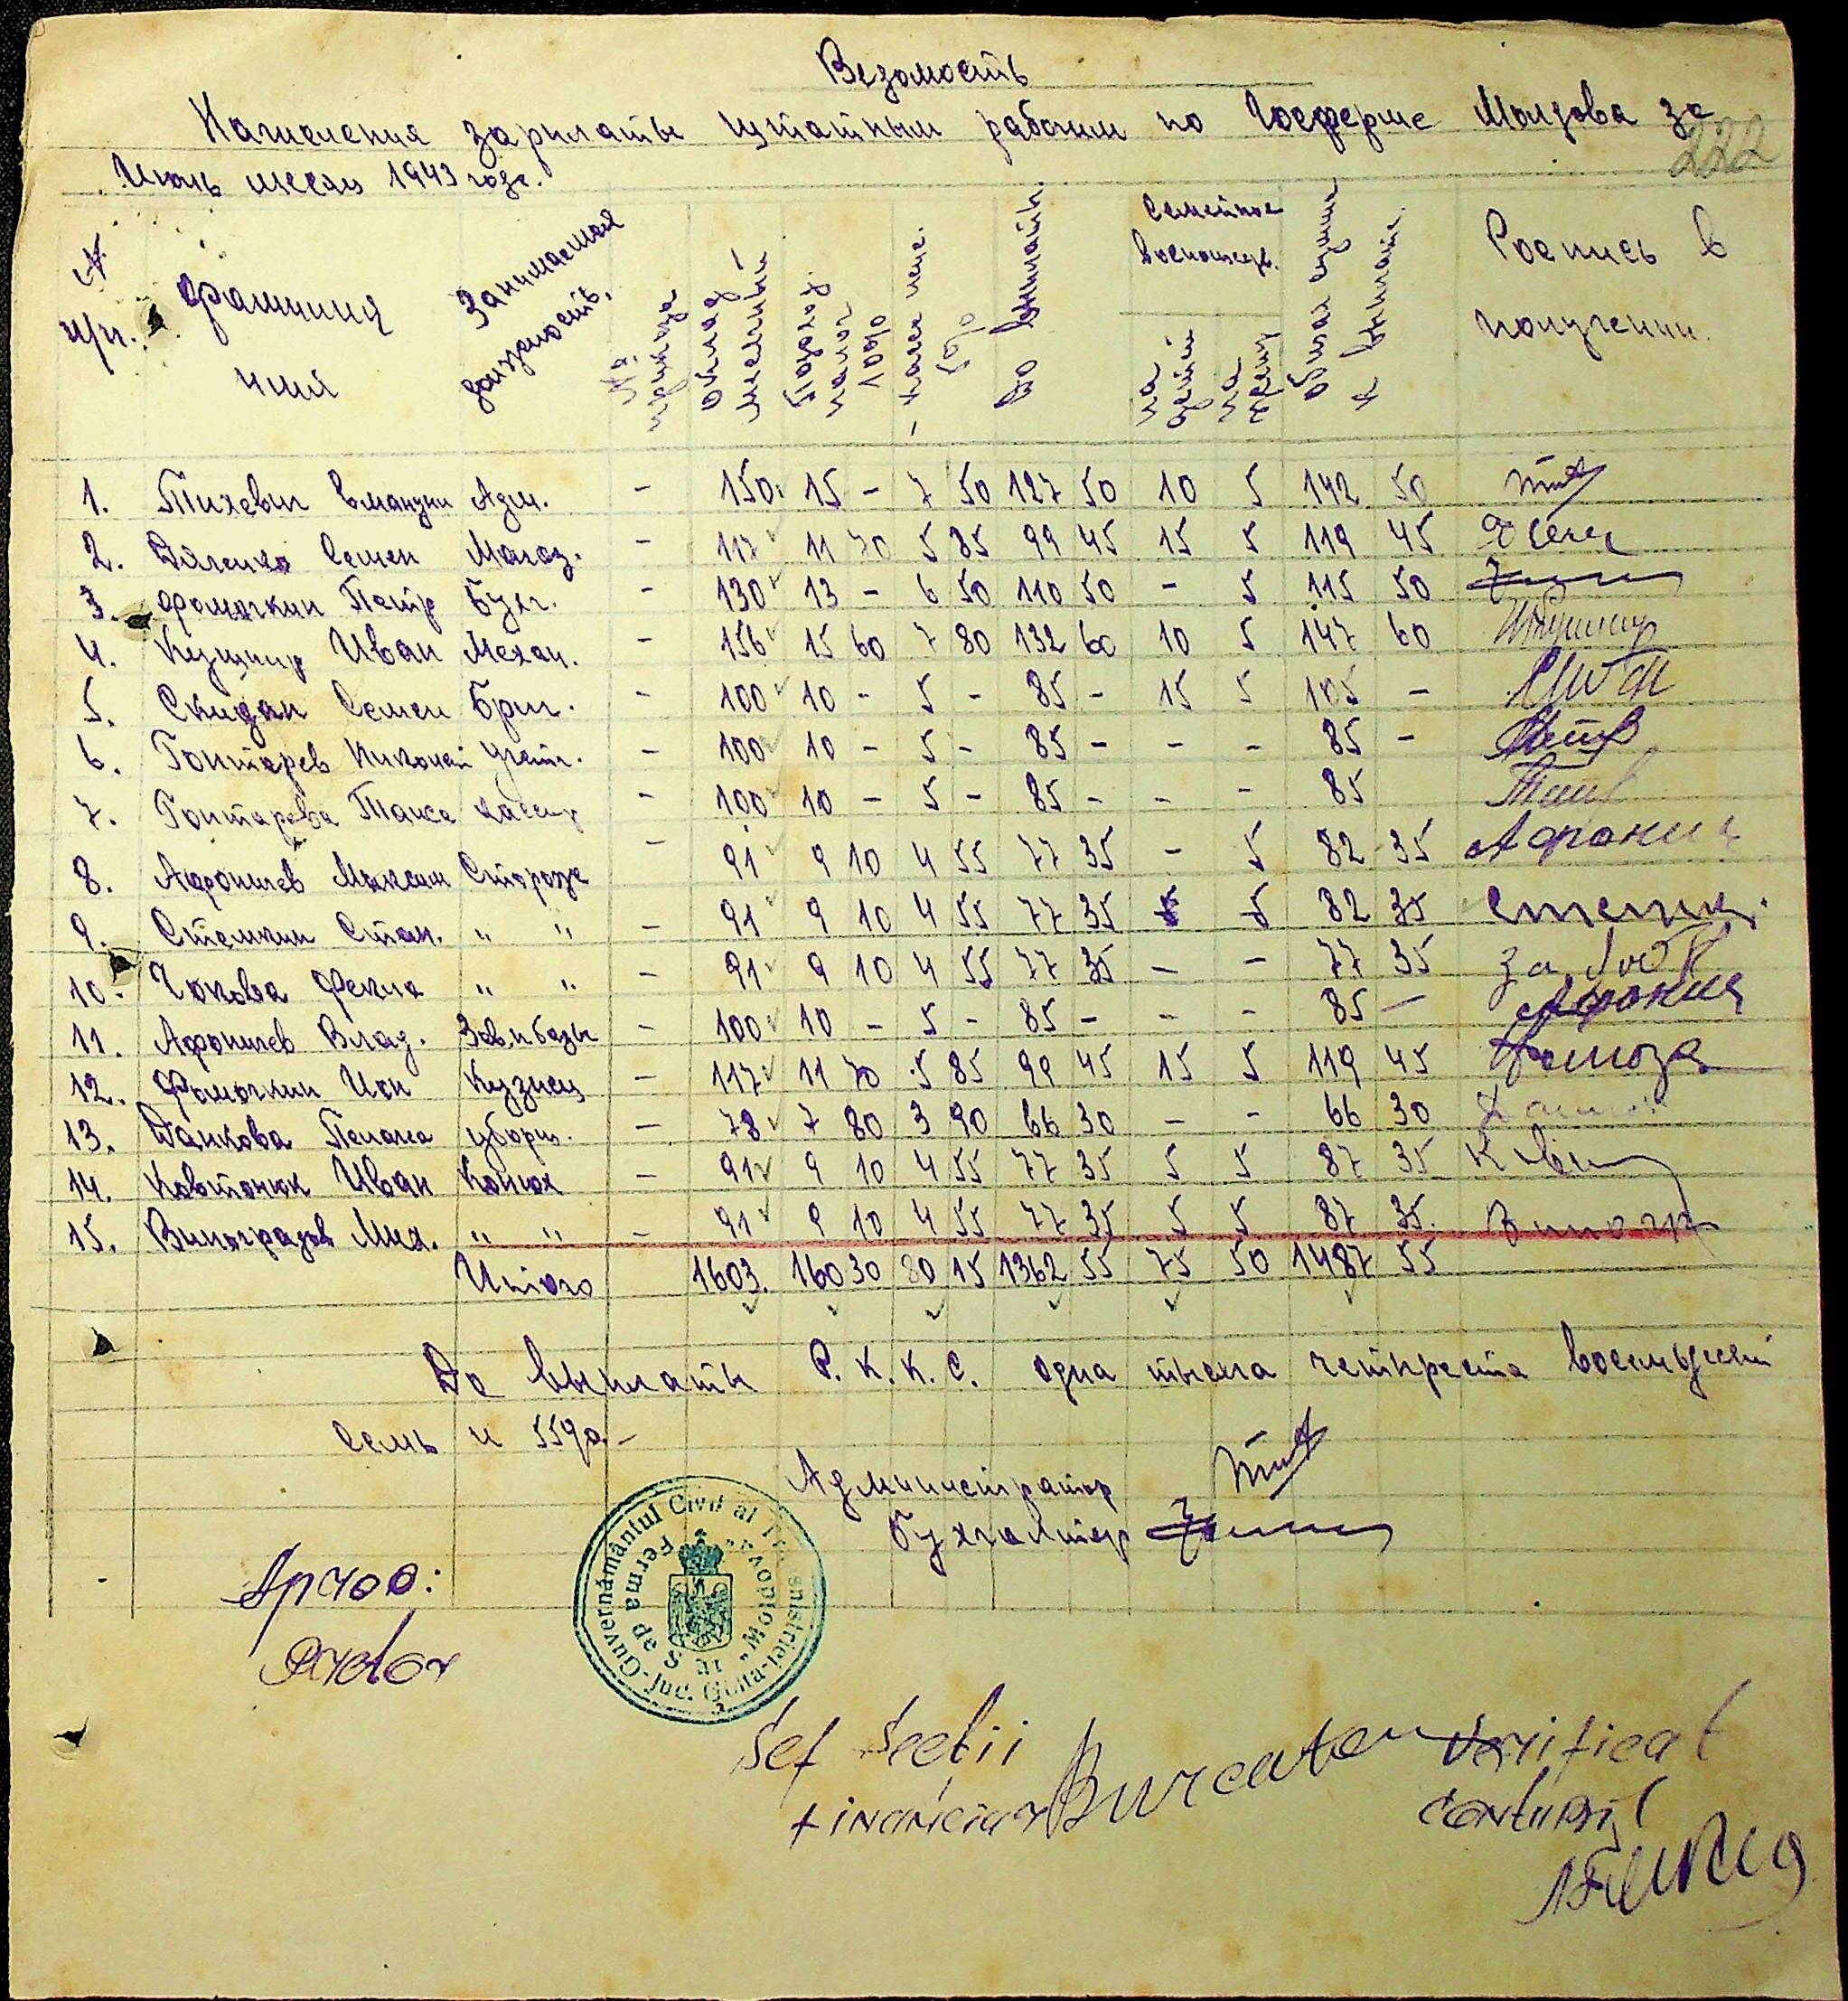 Ведомость
Начисления зарплаты штатным рабочим по Госферме Молдова за
222
Июль месяц 1943 года.
№ п/п. Фамилия имя Занимаемая должность. № приказа Оклад месячный Подоход. налог 10% налог пенс. 5% До выплаты Семейное вспомощ. на детей на жену Общая сумма к выплате. Роспись в получении.
1. Тихевич Эмануил Адм. - 150. 15 - 7 50 127 50 10 5 142 50
2. Дяченко Семен Магаз. - 117 11 70 5 85 99 45 15 5 119 45
3. Фомочкин Петр Бухг. - 130 13 - 6 50 110 50 - 5 115 50
4. Кушнир Иван Механ. - 156 15 60 7 80 132 60 10 5 147 60
5. Скидан Семен Бриг. - 100 10 - 5 - 85 - 15 5 105 -
6. Гонтарев Николай Учетч. - 100 10 - 5 - 85 - - - 85 -
7. Гонтарева Таиса кассир - 100 10 - 5 - 85 - - - 85
8. Афоничев Максим Сторож - 91 9 10 4 55 77 35 - 5 82 35 Афонич
9. Стемкин Стан. " " - 91 9 10 4 55 77 35 5 82 35
10. Чокова Фекла " " - 91 9 10 4 55 77 35 - - 77 35 за
11. Афоничев Влад. Зав.н.базы - 100 10 - 5 - 85 - - - 85 - Афонич
12. Фомочкин Ион Кузнец - 117 11 70 5 85 99 45 15 5 119 45
13. Данкова Пелагея уборщ. - 78 7 80 3 90 66 30 - - 66 30
14. Ковтонюк Иван Конюх - 91 9 10 4 55 77 35 5 5 87 35
15. Виноградов Мих. " " - 91 9 10 4 55 77 35 5 5 87 35. Виногр
Итого 1603. 160 30 80 15 1362 55 75 50 1487 55
До выплаты Р. К. К. С. одна тысяча четыреста восемьдесят
семь и 55 ф.-
Администратор
бухгалтер
Guvernământul Civil al Transnistriei-Jud. Golta-
Ferma de Stat „Moldova"
Șef Secții
financiar
Verificat
contabil